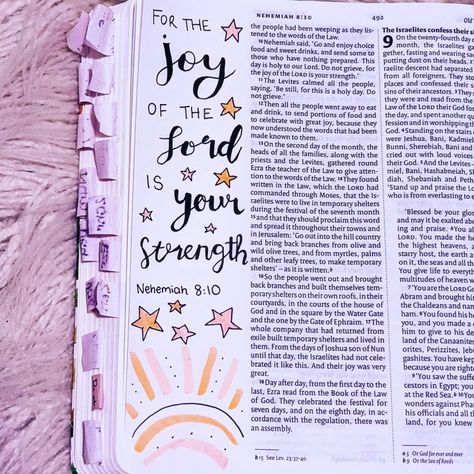 FOR THE
joy
OF THE
Lord
IS
your
Strength
Nehemiah 8:10
NEHEMIAH 8:10
492
the people had been weeping as they lis-
tened to the words of the Law.
10 Nehemiah said, 'Go and enjoy choice
food and sweet drinks, and send some to
those who have nothing prepared. This
day is holy to our Lord. Do not grieve, for
the joy of the LORD is your strength.'
11 The Levites calmed all the people,
saying, 'Be still, for this is a holy day. Do
not grieve.'
12 Then all the people went away to eat
and drink, to send portions of food and
to celebrate with great joy, because they
now understood the words that had been
made known to them.
13 On the second day of the month, the
heads of all the families, along with the
priests and the Levites, gathered round
Ezra the teacher to give attention
to the words of the Law. 14 They found
written in the Law, which the LORD had
commanded through Moses, that the Is-
raelites were to live in temporary shelters
during the festival of the seventh month
15 and that they should proclaim this word
and spread it throughout their towns and
in Jerusalem: 'Go out into the hill country
and bring back branches from olive and
wild olive trees, and from myrtles, palms
and other leafy trees, to make temporary
shelters' – as it is written.b
16 So the people went out and brought
back branches and built themselves tem-
porary shelters on their own roofs, in their
courtyards, in the courts of the house of
God and in the square by the Water Gate
and the one by the Gate of Ephraim. 17 The
whole company that had returned from
exile built temporary shelters and lived in
them. From the days of Joshua son of Nun
until that day, the Israelites had not cele-
brated it like this. And their joy was very
great.
18 Day after day, from the first day to the
last, Ezra read from the Book of the Law
of God. They celebrated the festival for
seven days, and on the eighth day, in ac-
cordance with the regulation, there was
an assembly.
b 15 See Lev. 23:37-40.
The Israelites confess their si
9 On the twenty-fourth day of
month, the Israelites gat
gether, fasting and wearing sac
putting dust on their heads.
raelite descent had separated
from all foreigners. They sto
places and confessed their si
sins of their ancestors. 3 They
they were and read from the
Law of the LORD their God for
the day, and spent another qu
fession and in worshipping th
God. 4 Standing on the stairs
were Jeshua, Bani, Kadmiel
Bunni, Sherebiah, Bani and
cried out with loud voices
their God. 5 And the Levites
miel, Bani, Hashabneiah, Sh
diah, Shebaniah and Petha
'Stand up and praise the L
who is from everlasting to e
'Blessed be your glorio
and may it be exalted abov
ing and praise. 6 You al
You made the heavens,
the highest heavens, a
starry host, the earth a
on it, the seas and all th
You give life to everyt
multitudes of heaven w
7 'You are the LORD G
Abram and brought
the Chaldeans and nam
ham. 8 You found his h
you, and you made a c
him to give to his desc
of the Canaanites
orites, Perizzites, Jeb
gashites. You have kept
because you are righteo
9 'You saw the suffer
cestors in Egypt; you
at the Red Sea.
wonders against Phar
his officials and all t
land, for you knew
a 5 Or God for ever and ever
b 9 Or the Sea of Reeds